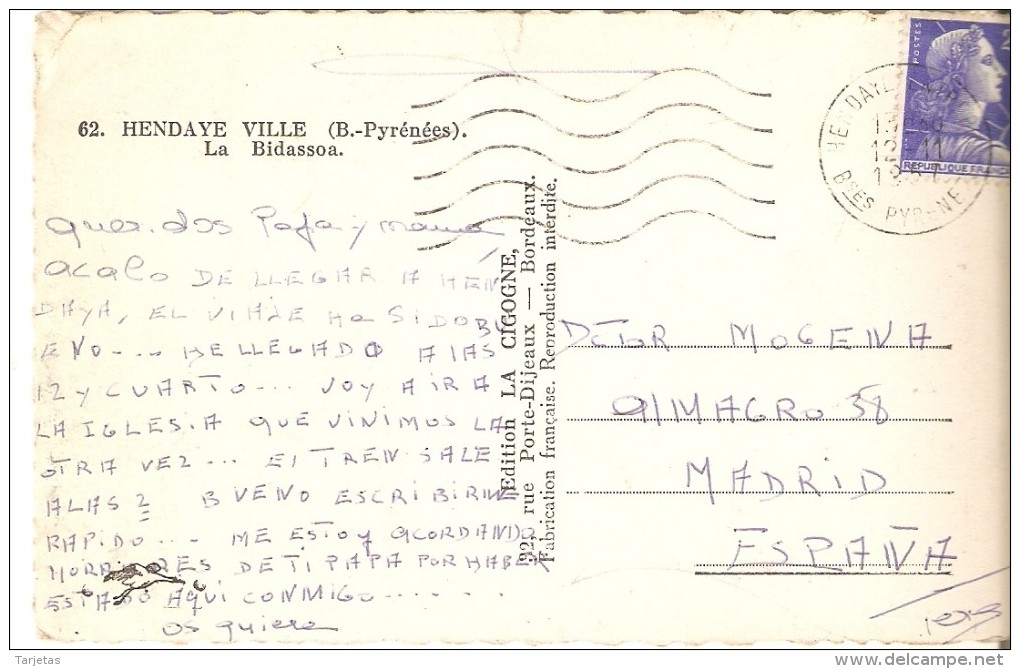 62. HENDAYE VILLE (B.-Pyrénées).
La Bidassoa.
Queridos Papa y mama
acabo DE LLEGAR A HEN
DAYA, EL VIAJE Ha SIDO BU
ENO.... HE LLEGADO A LAS
12 y CUARTO... VOY A IR A
LA IGLESIA QUE VINIMOS LA
OTRA VEZ... EL TREN SALE
A LAS 2 BUENO ESCRIBIRME
RAPIDO... ME ESTOY ACORDANDO
HORRORES DE TI PAPA POR HABER
ESTADO AQUI CONMIGO......
os quiere
Edition LA CIGOGNE,
22, rue Porte-Dijeaux — Bordeaux.
Fabrication française. Reproduction interdite.
POSTES
REPUBLIQUE FRANC
HENDAYE
Bses PYRENE
DCTOR MOGENA
AlMAGRO 38
MADRID
ESPAÑA
Tarjetas
www.delcampe.net